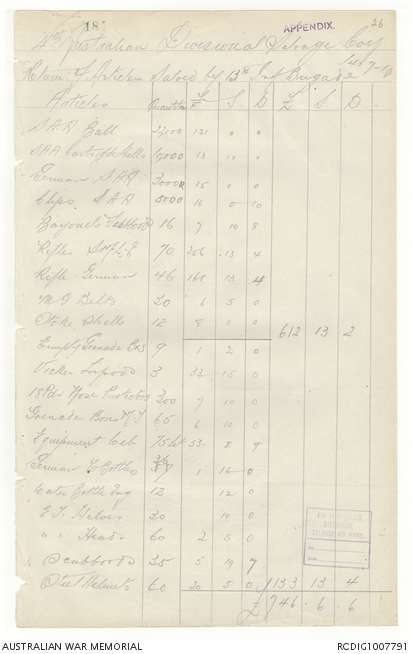 18
APPENDIX.
26
4th Australian Divisional Salvage Coy
Return of Articles Salved by 13th Inf Brigade
Articles Quantities £ S D £ S D
S A A Ball 0 0
S A A 0
German S A A 3000 15 0 0
Clips S A A 5000 0 10
Bayonets Scabbards 16 7 10 8
Rifles S M L E 70 256 13 4
Rifle German 46 168 13 4
M G Belts 30 6 5 0
Stoke Shells 12 8 0 0
612 13 2
Empty Grenade Bxs 9 1 2 0
Vicker Tripods 3 32 15 0
18 Pdr Nose Protectors 300 7 10 0
Grenade Boxes 65 6 10 0
Equipment 53 8 9
German Bottles 1 16 0
Water Bottle Eng 12 12 0
E. T. Helves 30 0
" " Heads 60 2 5 0
" Scabbards 35 5 19 7
Steel Helmets 60 20 5 0 133 13 4
£ 746 . 6 . 6
AUSTRALIAN WAR MEMORIAL
RCDIG1007791